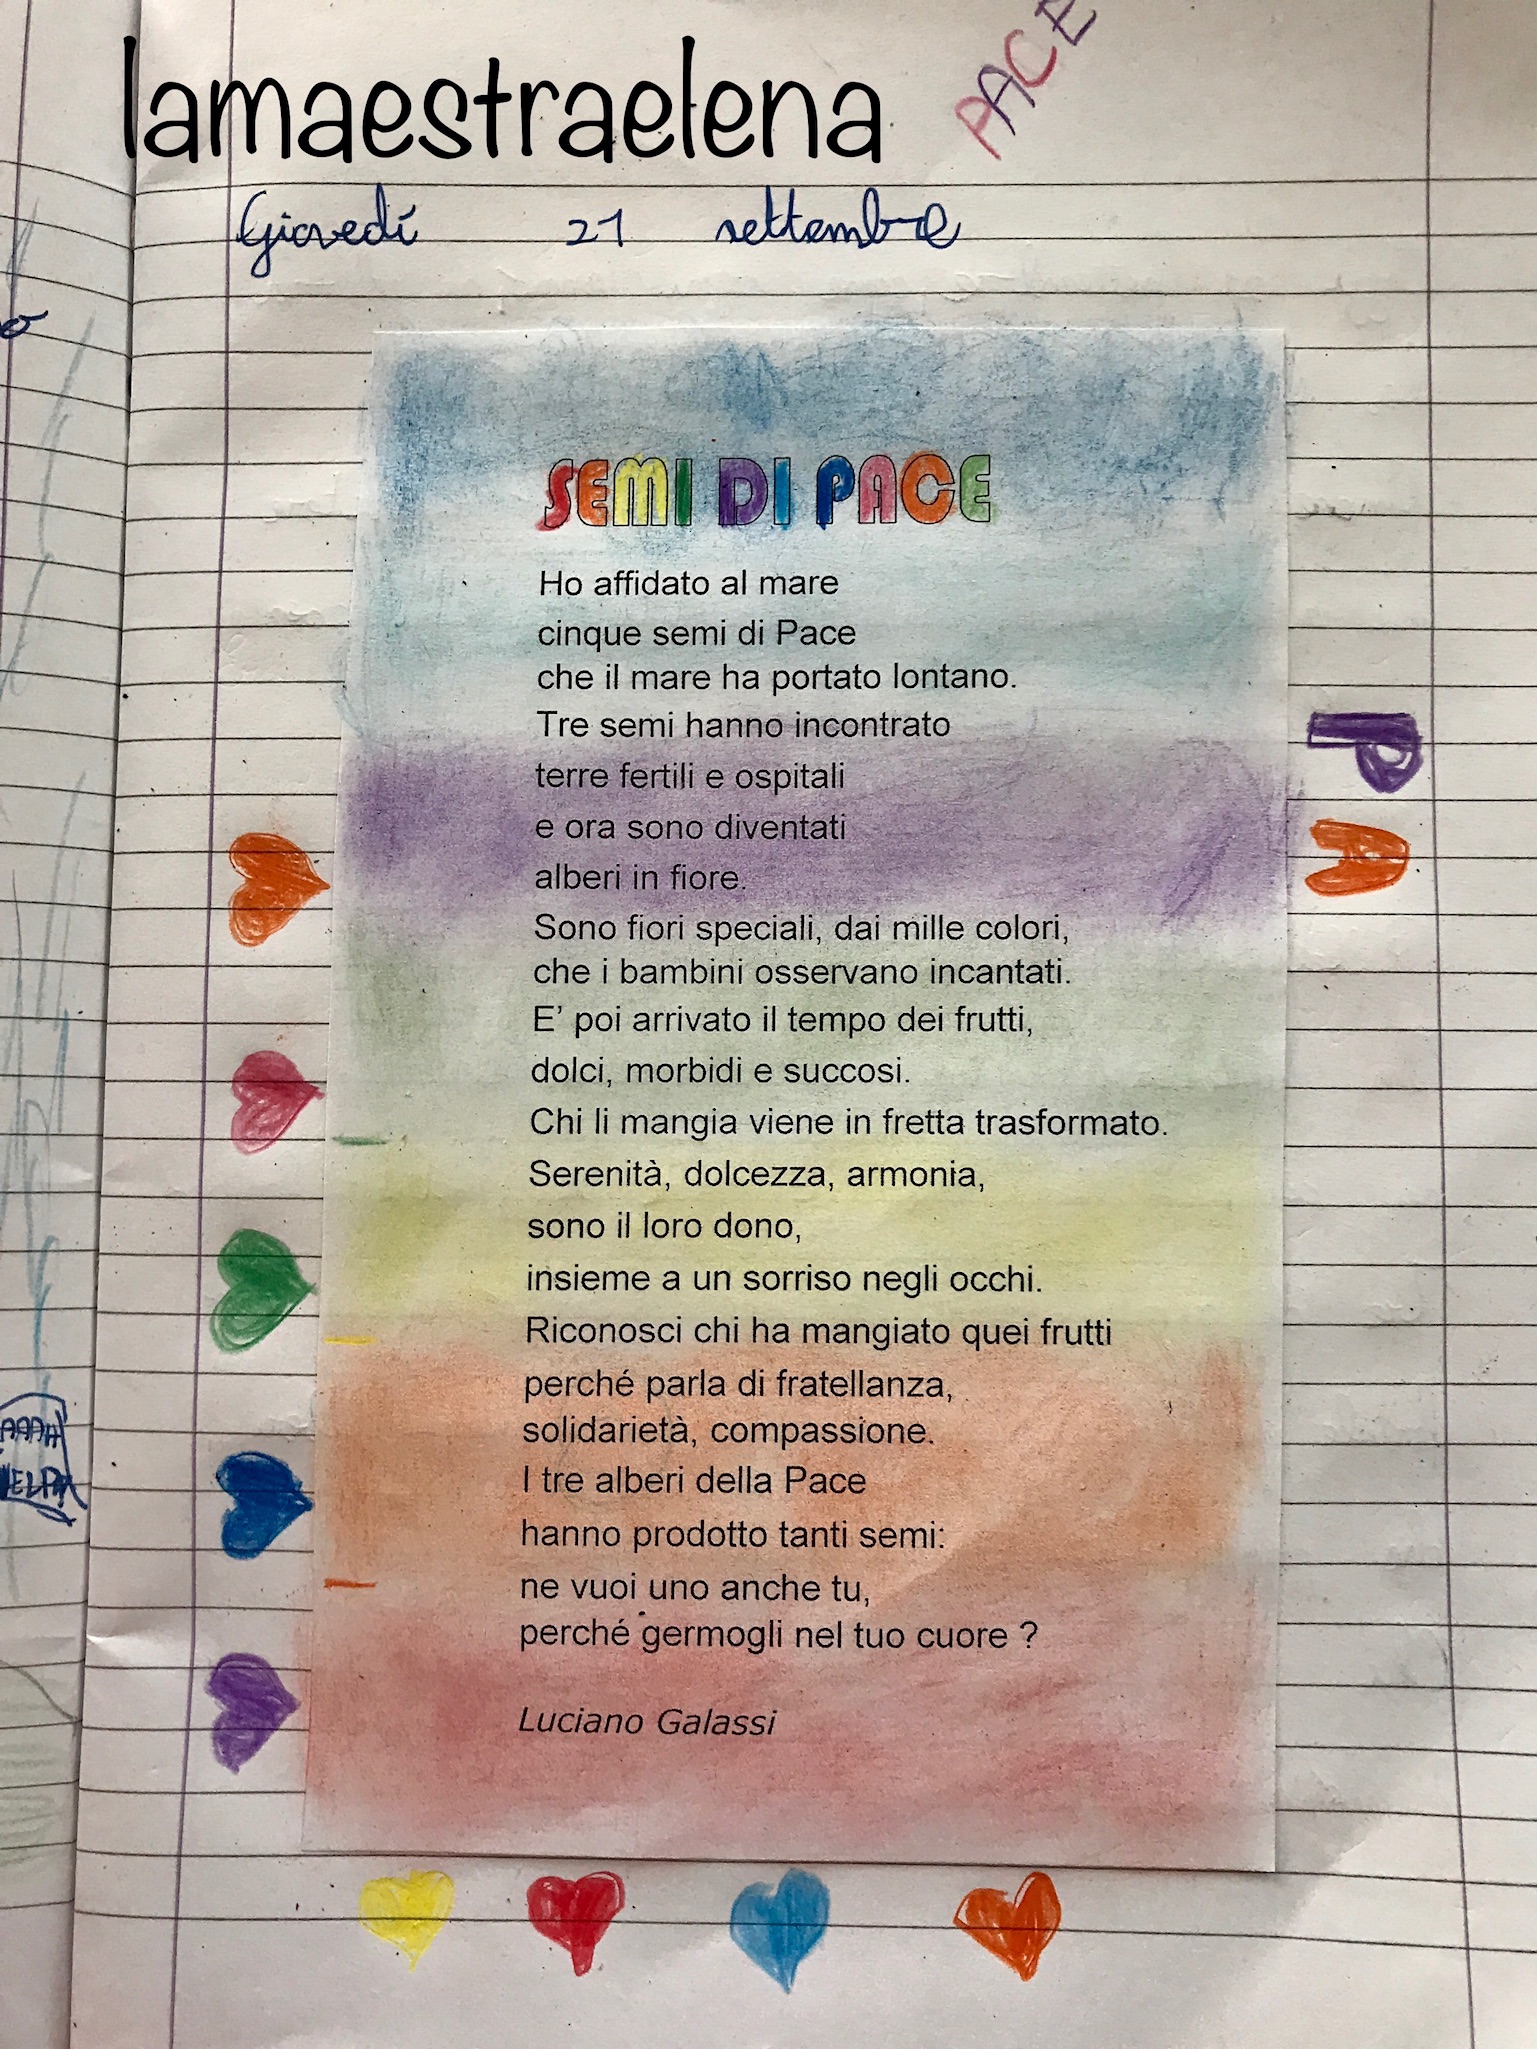 lamaestraelena
PACE
Giovedì 21 settembre
SEMI DI PACE
Ho affidato al mare
cinque semi di Pace
che il mare ha portato lontano.
Tre semi hanno incontrato
terre fertili e ospitali
e ora sono diventati
alberi in fiore.
Sono fiori speciali, dai mille colori,
che i bambini osservano incantati.
E' poi arrivato il tempo dei frutti,
dolci, morbidi e succosi.
Chi li mangia viene in fretta trasformato.
Serenità, dolcezza, armonia,
sono il loro dono,
insieme a un sorriso negli occhi.
Riconosci chi ha mangiato quei frutti
perché parla di fratellanza,
solidarietà, compassione.
I tre alberi della Pace
hanno prodotto tanti semi:
ne vuoi uno anche tu,
perché germogli nel tuo cuore ?
Luciano Galassi
PA